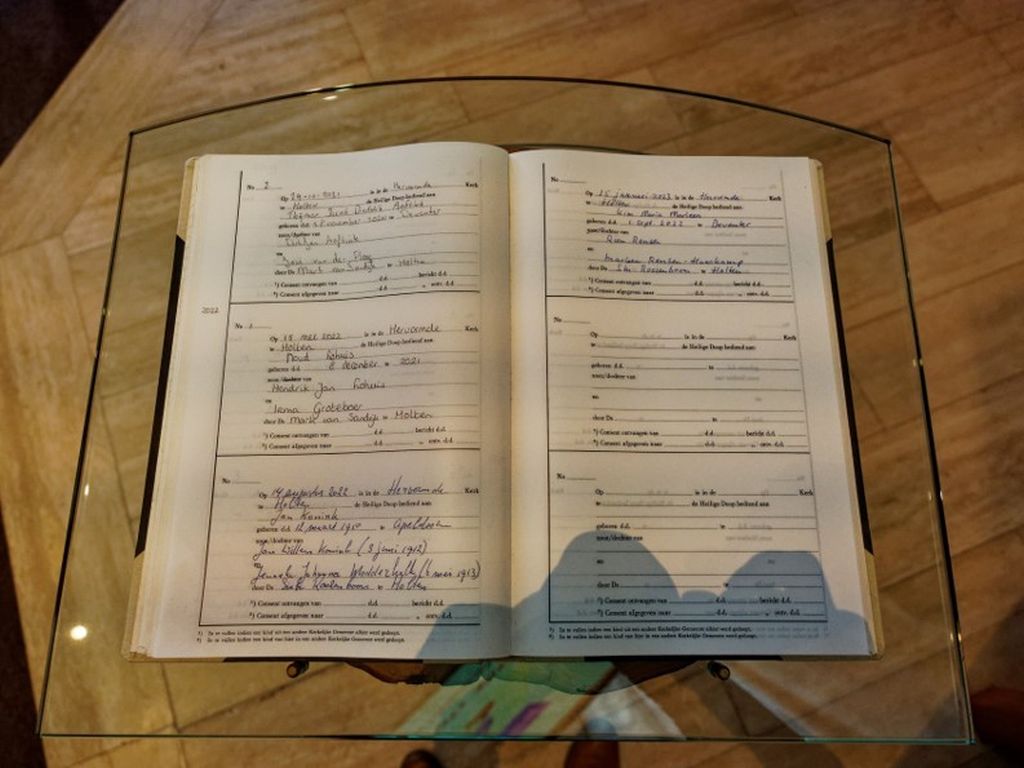 No 2
Op 24-10-2021 is in de Hervormde Kerk
te Holten de Heilige Doop bediend aan
geboren d.d. november 2020 te Deventer
zoon/dochter van
en
José van der Ploeg
door Ds Mark van Sandijk te Holten
*) Consent ontvangen van d.d. bericht d.d.
*) Consent afgegeven naar d.d. , ontv. d.d.
2022
No 1
Op 15 mei 2022 is in de Hervormde Kerk
te Holten de Heilige Doop bediend aan
Maud Lohuis
geboren d.d. 8 december te 2021
zoon/dochter van
Hendrik Jan Lohuis
en
Irma Groteboer
door Ds Mark van Sandijk te Holten
*) Consent ontvangen van d.d. bericht d.d.
*) Consent afgegeven naar d.d. , ontv. d.d.
No
Op 14 augustus 2022 is in de Hervormde Kerk
te Holten de Heilige Doop bediend aan
Jan Konink
geboren d.d. 12 maart 1950 te Apeldoorn
zoon/dochter van
Jan Willem Konink (3 juni 1912)
en
Johanna (6 mei 1913)
door Ds te Holten
*) Consent ontvangen van d.d. bericht d.d.
*) Consent afgegeven naar d.d. , ontv. d.d.
*) In te vullen indien een kind uit een andere Kerkelijke Gemeente alhier werd gedoopt.
*) In te vullen indien een kind van hier in een andere Kerkelijke Gemeente werd gedoopt.
No
Op 15 januari 2023 is in de Hervormde Kerk
te Holten de Heilige Doop bediend aan
Kim Maria Marleen
geboren d.d. 1 sept. 2022 te Deventer
zoon/dochter van
Rensen
en
Marleen Rensen-
door Ds Rozenboom te Holten
*) Consent ontvangen van d.d. bericht d.d.
*) Consent afgegeven naar d.d. , ontv. d.d.
No
Op is in de Kerk
te de Heilige Doop bediend aan
geboren d.d. te
zoon/dochter van
en
door Ds te
*) Consent ontvangen van d.d. bericht d.d.
*) Consent afgegeven naar d.d. , ontv. d.d.
No
Op is in de Kerk
te de Heilige Doop bediend aan
geboren d.d. te
zoon/dochter van
en
door Ds te
*) Consent ontvangen van d.d. bericht d.d.
*) Consent afgegeven naar d.d. , ontv. d.d.
*) In te vullen indien een kind uit een andere Kerkelijke Gemeente alhier werd gedoopt.
*) In te vullen indien een kind van hier in een andere Kerkelijke Gemeente werd gedoopt.